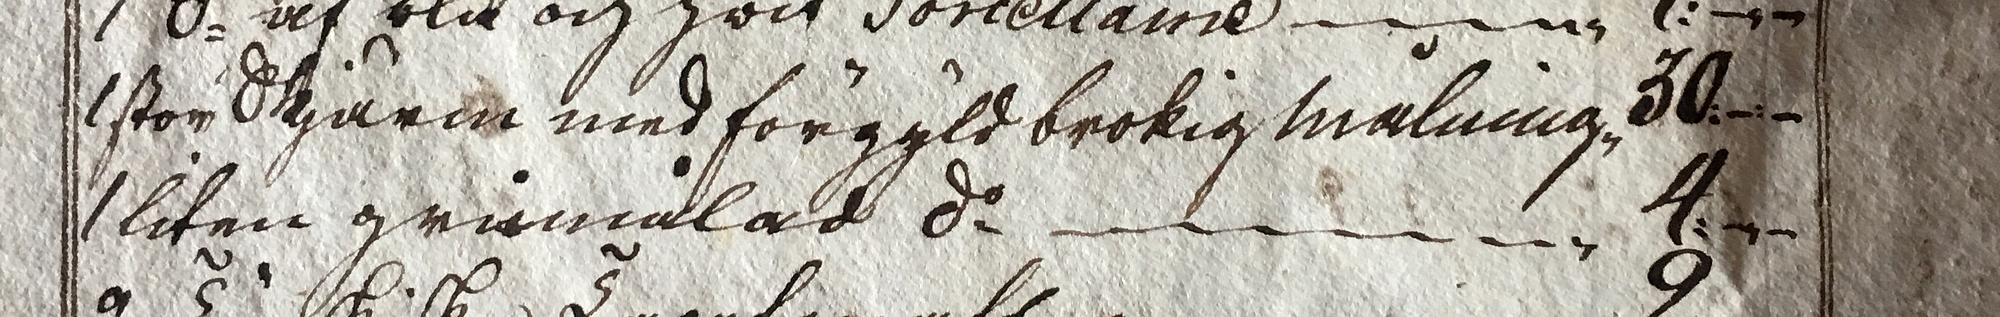 1 do af blå och hwit Porcellaine — — — „ 1: — „ —
1 stor Skjärm med förgyld brokig målning „ 30: — : —
1 liten gråmålad do — — — — — „ 4: — „ —
9